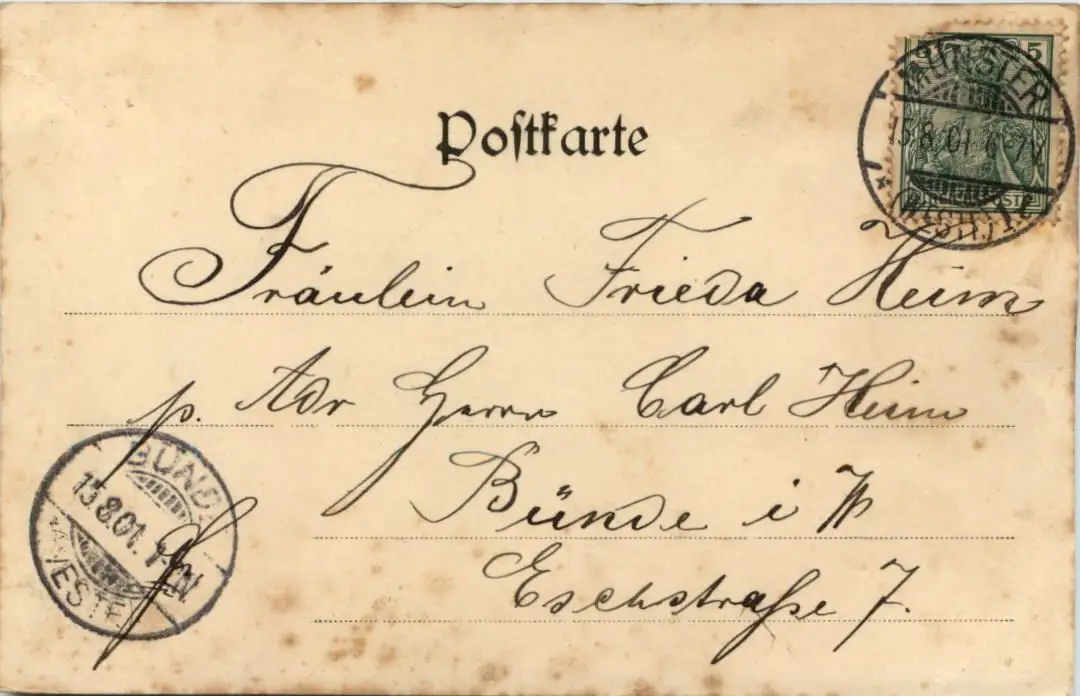 Postkarte
5
MÜNSTER
15.8.01.
* (WESTF.)
Fräulein Frieda Heim
p. Adr Herrn Carl Heim
Bünde i W
Eschstraße 7.
BÜNDE
15.8.01.
(WESTF.)